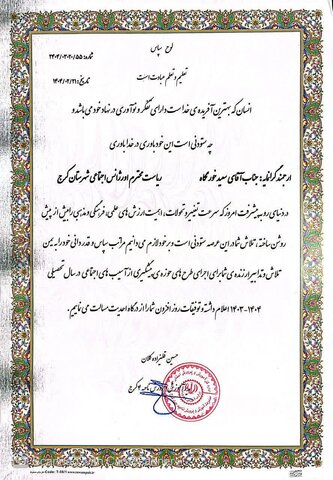 لوح سپاس
تعلیم و تعلم عبادت است
انسان که بهترین آفریده ی خداست دارای تفکر و نوآوری در نهاد خود می باشد و
چه ستودنی است این خودباوری در خداباوری
ارجمند گرانمایه: جناب آقای سعید خورگاه ریاست محترم اورژانس اجتماعی شهرستان کرج
در دنیای رو به پیشرفت امروز که سرعت تغییر و تحولات، اهمیت ارزش های علمی، فرهنگی و مذهبی را بیش از پیش
روشن ساخته، تلاش شما در این عرصه ستودنی است و بر خود لازم می دانیم مراتب سپاس و قدردانی خود را به یمن
تلاش و تدابیر ارزنده ی شما برای اجرای طرح های حوزه ی پیشگیری از آسیب های اجتماعی در سال تحصیلی
۱۴۰۳-۱۴۰۴ اعلام داشته و توفیقات روز افزون شما را از درگاه احدیت مسالت می نماییم.
حسین قلیزاده کلان